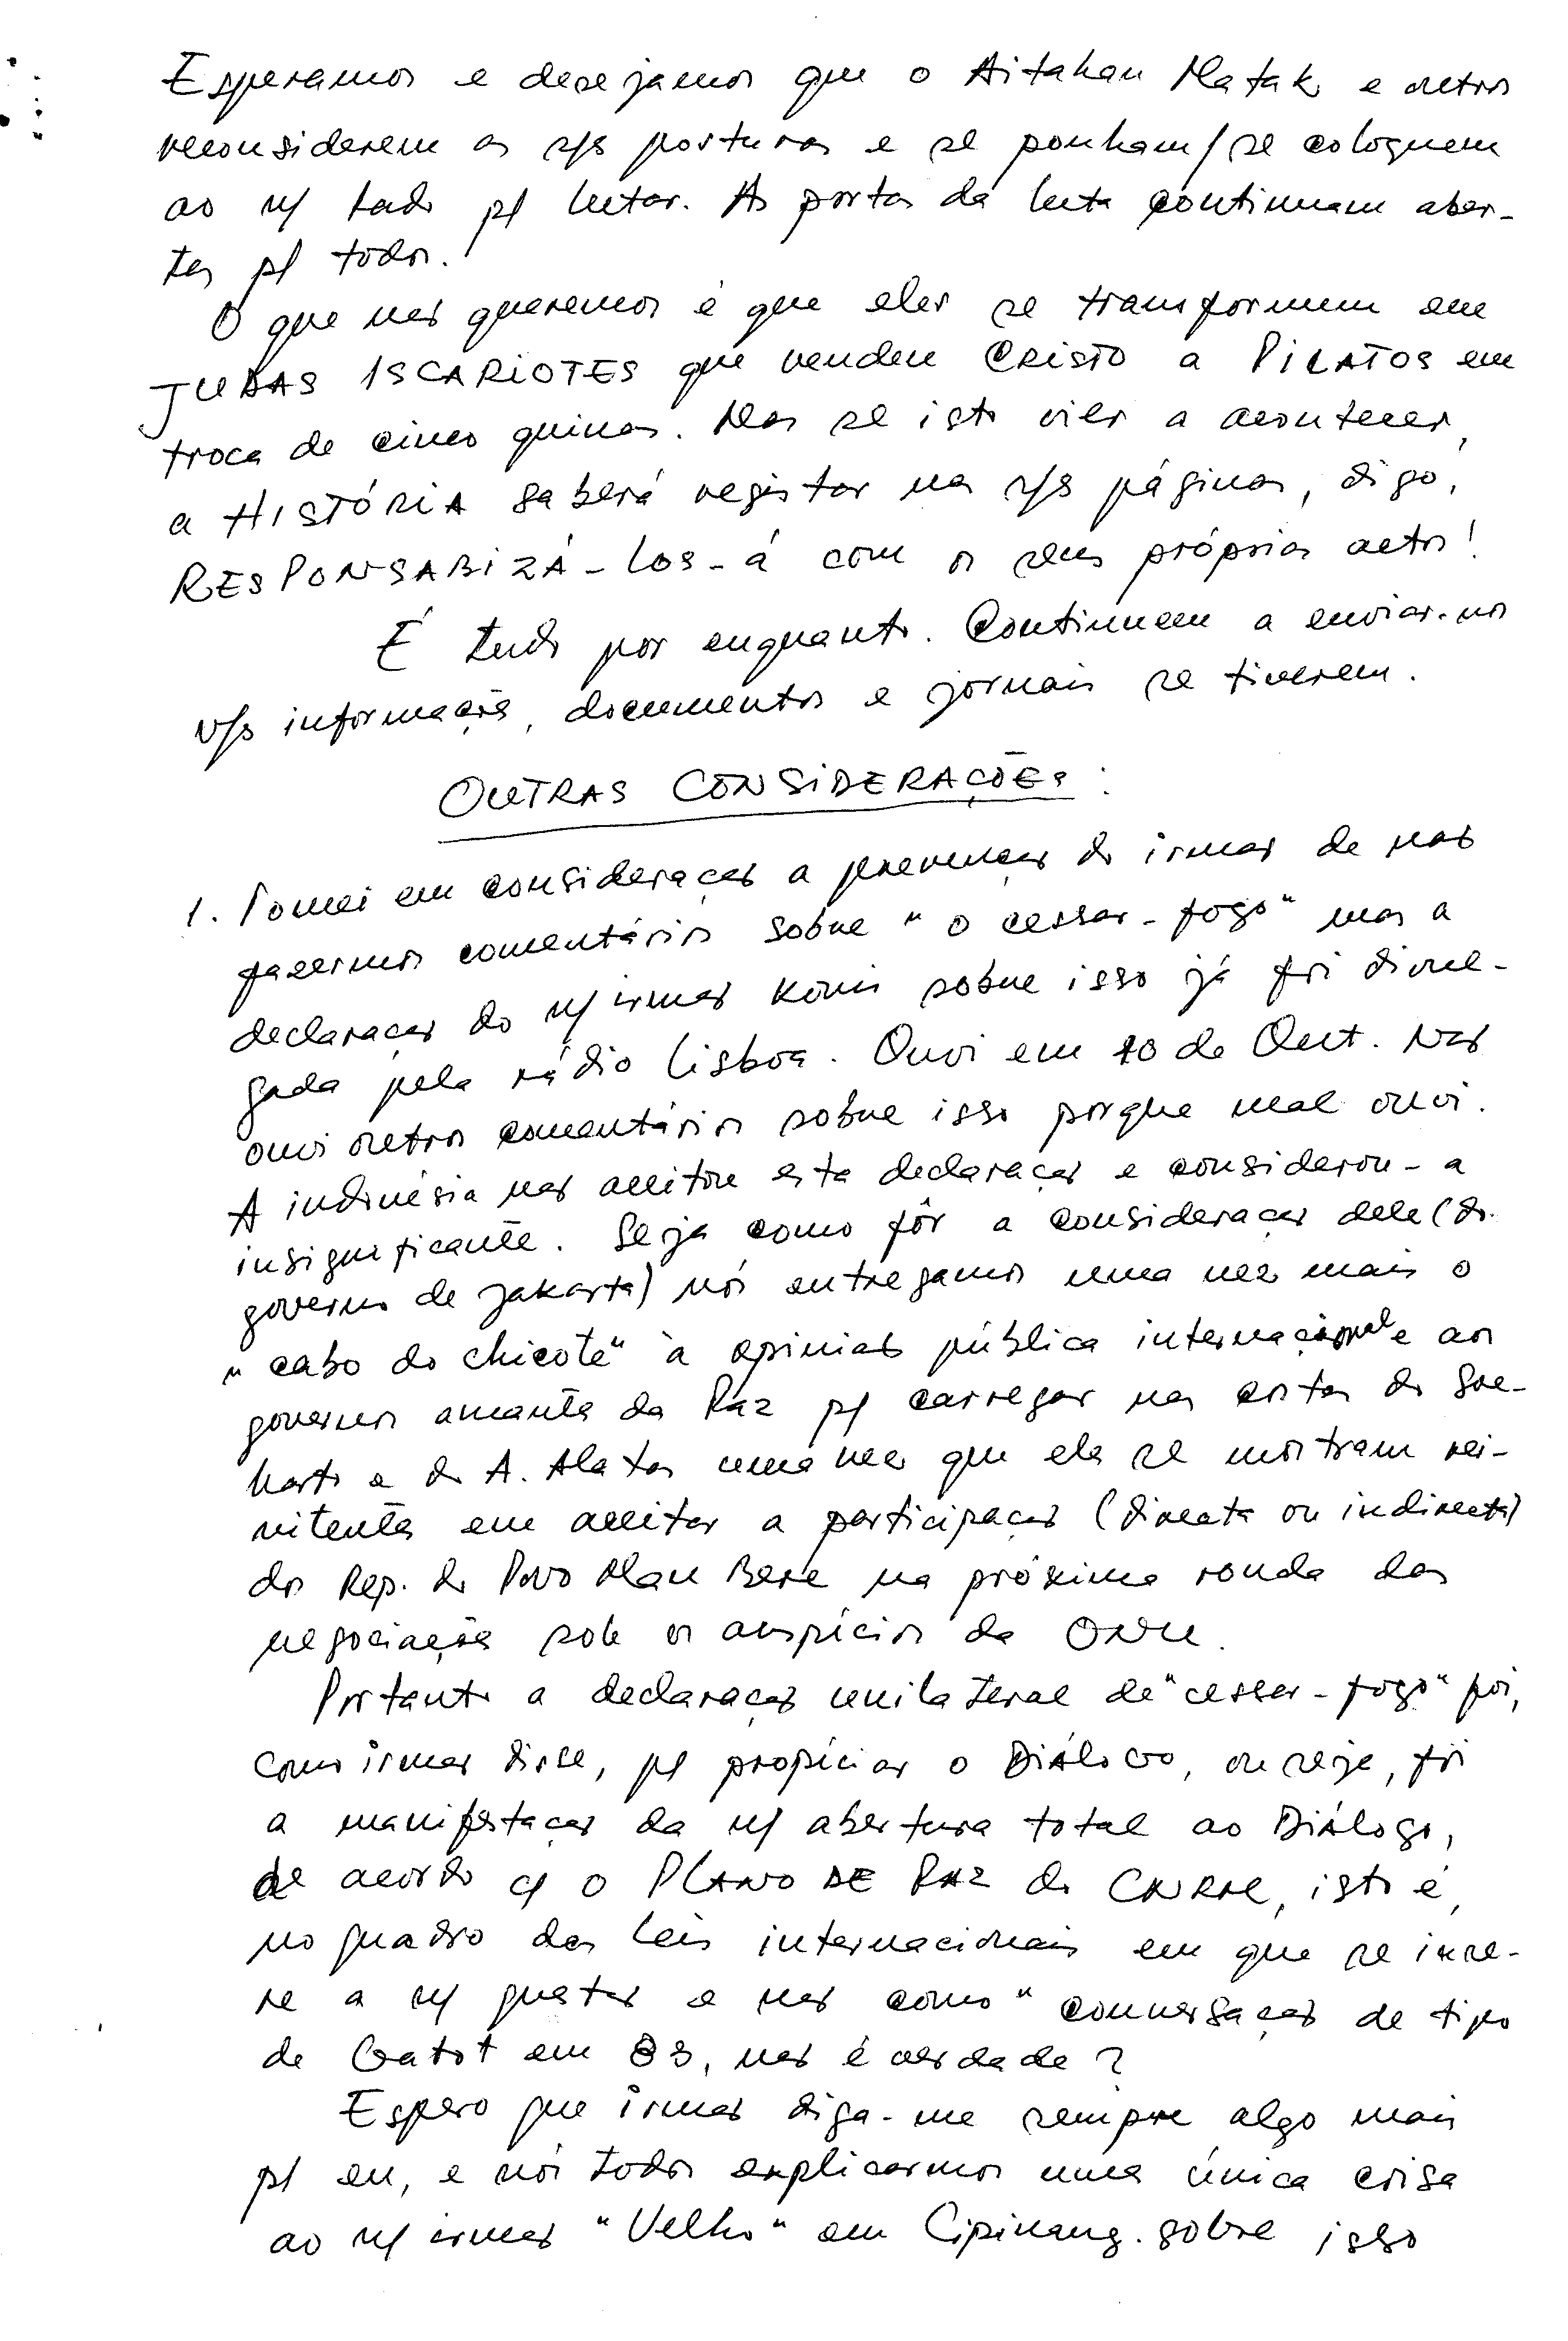 Esperamos e desejamos que o Aitahan Matak e outros
reconsiderem as s/s posturas e se ponham/se coloquem
ao n/ lado p/ lutar. As portas da luta continuam aber-
tas p/ todos.
O que não queremos é que eles se transformem em
JUDAS ISCARIOTES que vendeu CRISTO a PILATOS em
troca de cinco quinas. Mas se isto vier a acontecer,
a HISTÓRIA saberá registar nas s/s páginas, digo,
RESPONSABIZÁ-los-á com os seus próprios actos!
É tudo por enquanto. Continuem a enviar-nos
v/s informações, documentos e jornais se tiverem.
OUTRAS CONSIDERAÇÕES:
1. Tomei em consideração a prevenção do irmão de não
fazermos comentários sobre "o cessar-fogo" mas a
declaração do n/ irmão Konis sobre isso já foi divul-
gada pela rádio Lisboa. Ouvi em 10 de Out. Não
ouvi outros comentários sobre isso porque mal ouvi.
A indonésia não aceitou esta declaração e considerou-a
insignificante. Seja como fôr a consideração dele (do
governo de Jakarta) nós entregamos uma vez mais o
"cabo do chicote" à opinião pública internacional e aos
governos amantes da Paz p/ carregar nas costas do Soe-
harto e do A. Alatas uma vez que eles se mostram rei-
nitentes em aceitar a participação (directa ou indirecta)
dos Rep. do Povo Mau Bere na próxima ronda das
negociações sob os auspícios da ONU.
Portanto a declaração unilateral de "cessar-fogo" foi,
como irmão disse, p/ propiciar o DIÁLOGO, ou seja, foi
a manifestação da n/ abertura total ao Diálogo,
de acordo c/ o PLANO DE PAZ do CNRM, isto é,
no quadro das leis internacionais em que se inse-
re a n/ questão e não como "conversação de tipo
de Gatot em 83, não é verdade?
Espero que irmão diga-me sempre algo mais
p/ eu, e nós todos explicarmos uma única coisa
ao n/ irmão "Velho" em Cipinang. sobre isso